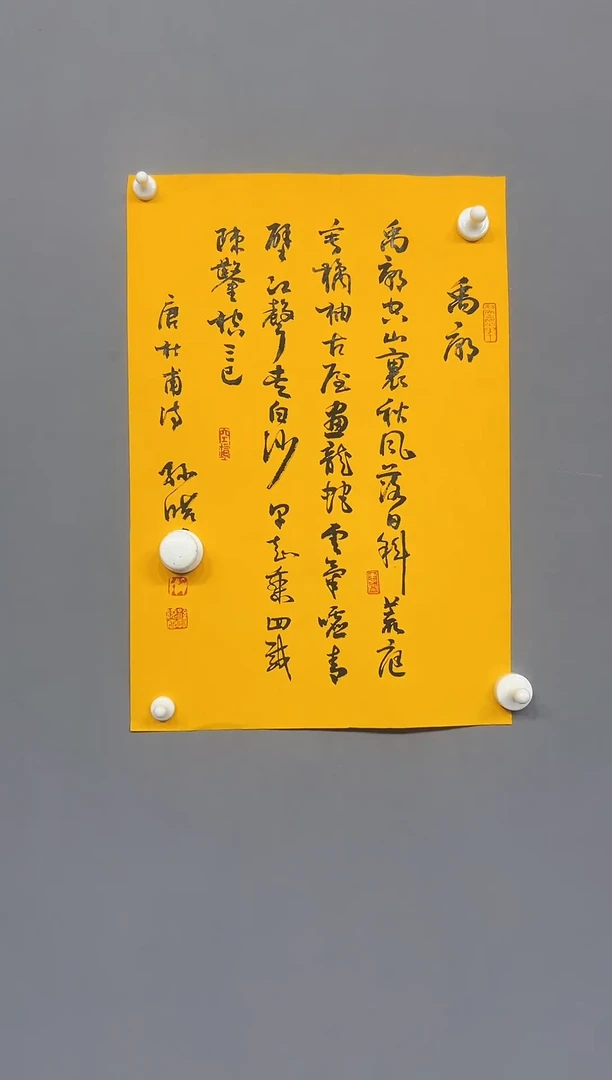 禹廟
禹廟空山裏秋風落日斜荒庭
垂橘柚古屋畫龍蛇雲氣噓青
壁江聲走白沙早知乘四載
疎鑿控三巴
唐杜甫詩 孫